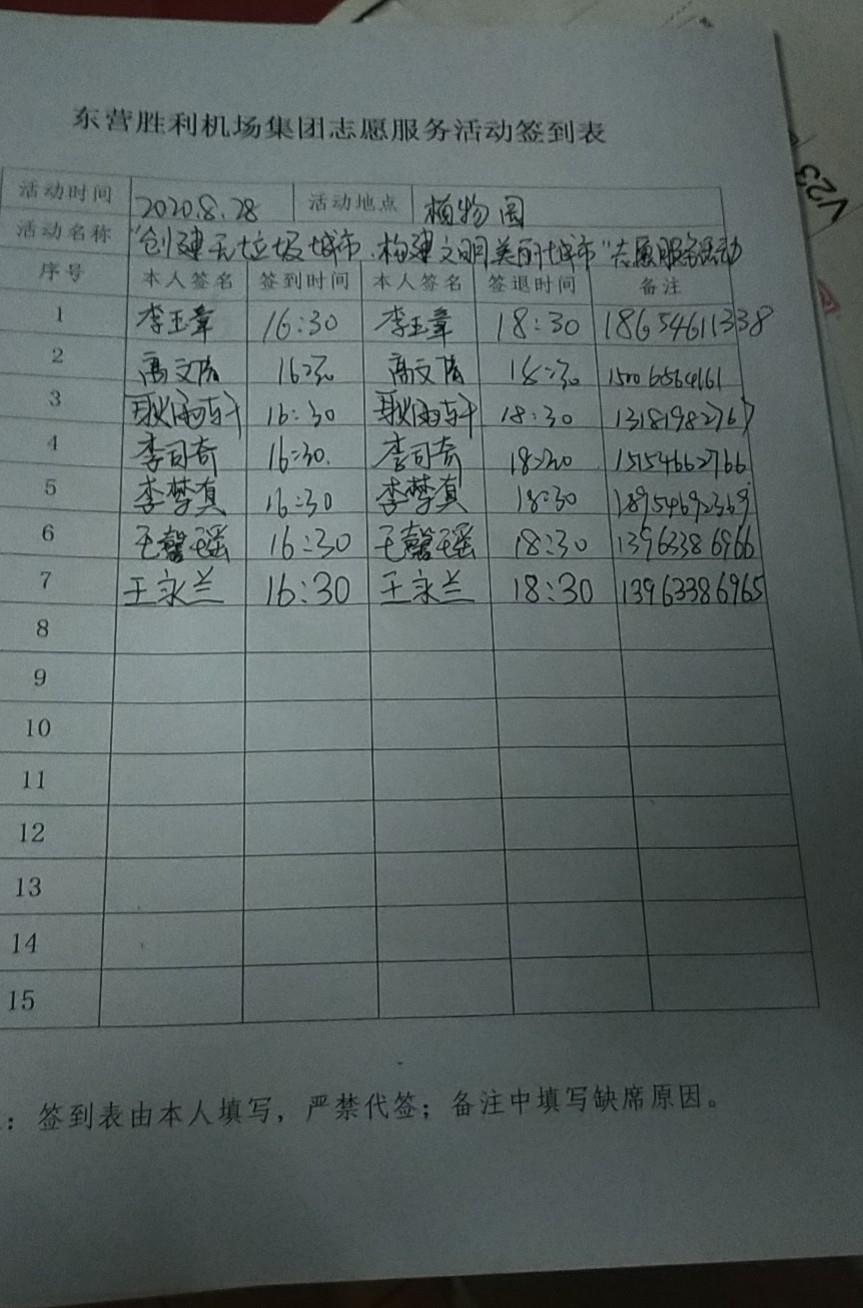 东营胜利机场集团志愿服务活动签到表
活动时间 2020.8.28 活动地点 植物园
活动名称 "创建无垃圾城市、构建文明美丽城市"志愿服务活动
序号 本人签名 签到时间 本人签名 签退时间 备注
1 李玉章 16:30 李玉章 18:30 18654611338
2 高文 16:30 高文 18:30 15006564161
3 耿雨轩 16:30 耿雨轩 18:30 13181982767
4 李司奇 16:30. 李司奇 18:30 15154662766
5 李梦真 16:30 李梦真 18:30 18954692369
6 王馨瑶 16:30 王馨瑶 18:30 13963386966
7 王永兰 16:30 王永兰 18:30 13963386965
8
9
10
11
12
13
14
15
：签到表由本人填写，严禁代签；备注中填写缺席原因。
V23